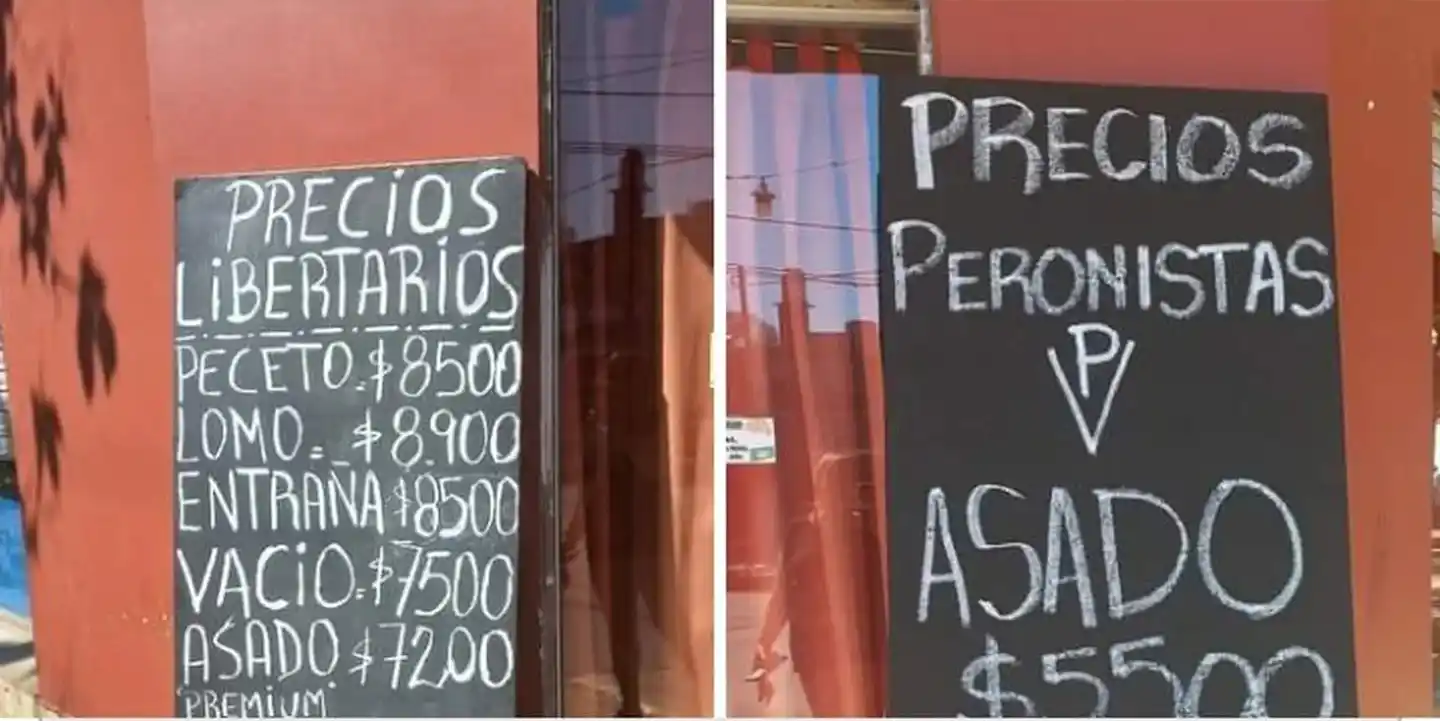 PRECiOS
LiBERTARiOS
PECETO=$8500
LOMO=_$8.900
ENTRAÑA $8500
VACiO=$7500
ASADO $7200
PREMIUM
PRECIOS
PERONISTAS
P
V
ASADO
$5500